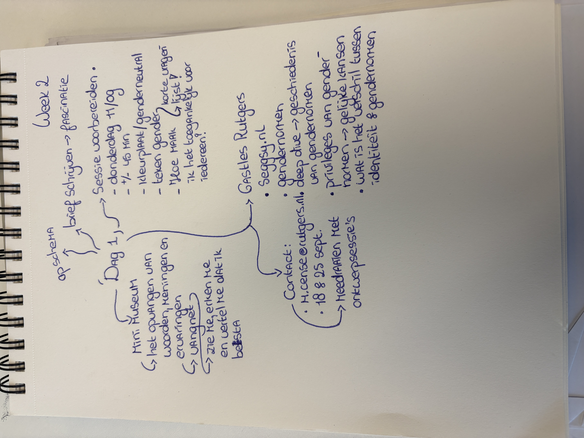 Week 2
op schema
brief schrijven → fascinatie
Dag 1,
Sessie voorbereiden •
- donderdag 11/09
- +/- 45 min
- kleurplaat/genderneutral
- teken gender
- Hoe maak
ik het toegankelijk voor
iedereen?
korte vragen
lijst?
Mini Museum
↳ het opvangen van
woorden, meningen en
ervaringen
↳ vangnet
↳ zie me, erken me
en vertel me dat ik
besta
Gastles Rutgers
• Seggsy.nl
• gendernormen
• deep dive → geschiedenis
van gendernormen
• privileges van gender-
normen → gelijke kansen
• wat is het verschil tussen
identiteit & gendernormen
Contact:
• M.cense@rutgers.nl
• 18 & 25 sept.
↳ Meedraaien met
ontwerpsessie's